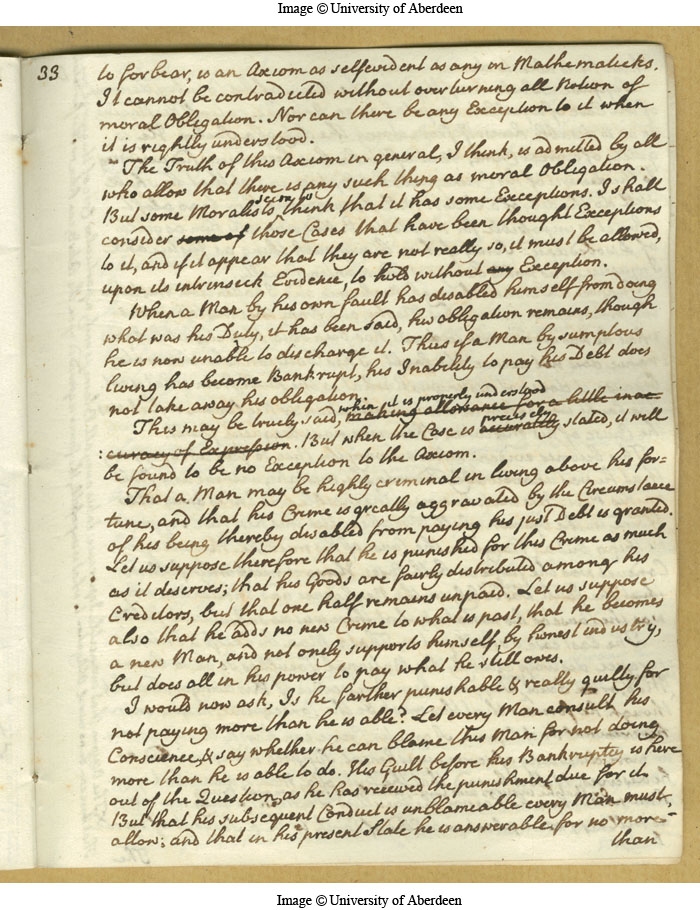 Image © University of Aberdeen
33
to forbear, is an Axiom as selfevident as any in Mathematicks.
It cannot be contradicted without overturning all Notion of
moral Obligation. Nor can there be any Exception to it when
it is rightly understood.
The Truth of this Axiom in general, I think, is admitted by all
who allow that there is any such thing as moral Obligation.
seem to
But some Moralists think that it has some Exceptions. I shall
consider some of those Cases that have been thought Exceptions
to it, and if it appear that they are not really so, it must be allowed,
upon its intrinsick Evidence, to hold without any Exception.
When a Man by his own fault has disabled himself from doing
what was his Duty, it has been said, his obligation remains, though
he is now unable to discharge it. Thus if a Man by sumptous
living has become Bankrupt, his Inability to pay his Debt does
not take away his obligation.
when it is properly understood
This may be truely said, making allowance for a little inac=
precisely
:curacy of Expression. But when the Case is accurately stated, it will
be found to be no Exception to the Axiom.
That a Man may be highly criminal in living above his for=
tune, and that his Crime is greatly aggravated by the Circumstance
of his being thereby disabled from paying his just Debt is granted.
Let us suppose therefore that he is punished for this Crime as much
as it deserves; that his Goods are fairly distributed among his
Creditors, but that one half remains unpaid. Let us suppose
also that he adds no new Crime to what is past, that he becomes
a new Man, and not onely supports himself by honest industry,
but does all in his power to pay what he still owes.
I would now ask, Is he farther punishable & really guilty for
not paying more than he is able? Let every Man consult his
Conscience, & say whether he can blame this Man for not doing
more than he is able to do. His Guilt before his Bankruptcy is here
out of the Question, as he has received the punishment due for it.
But that his subsequent Conduct is unblameable every Man must
allow; and that in his present State he is answerable for no more
than
Image © University of Aberdeen